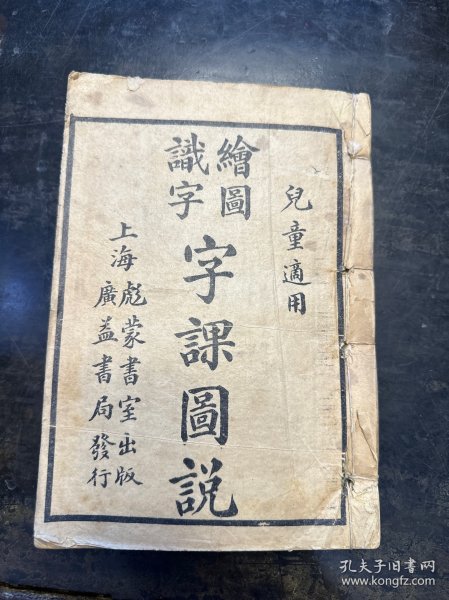 兒童適用
繪圖
識字
字課圖説
上海彪蒙書室出版
廣益書局發行
孔夫子旧书网
www.kongfz.com